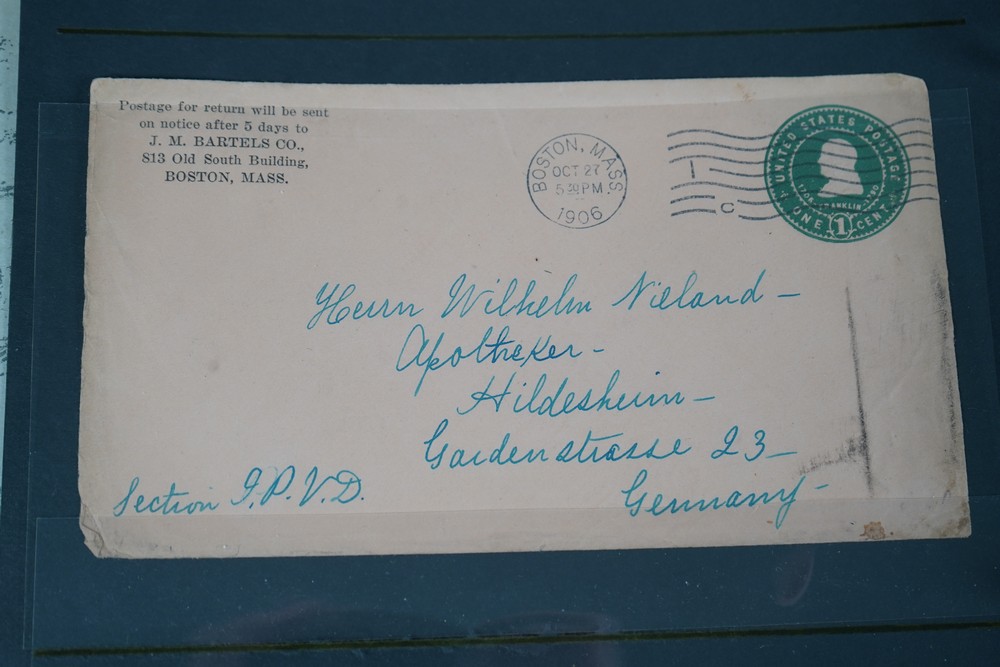 Postage for return will be sent
on notice after 5 days to
J. M. BARTELS CO.,
813 Old South Building,
BOSTON, MASS.
BOSTON, MASS.
OCT 27
5 PM
1906
1
C
UNITED STATES POSTAGE
FRANKLIN
ONE 1 CENT
Herrn Wilhelm Nieland –
Apotheker –
Hildesheim –
Gardenstrasse 23 –
Germany –
Section I.P.V.D.